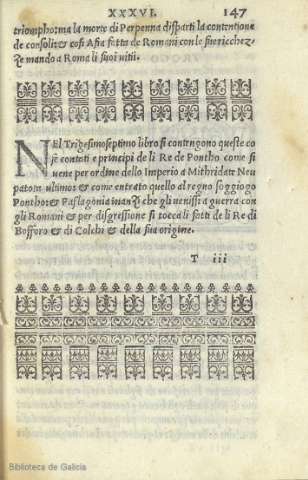 XXXVI. 147
triompho: ma la morte di Perpenna disparti la contentione
de consoli: & cosi Asia fatta de Romani con le sue ricchez-
ze mando a Roma li suoi uitii.
NEl Trigesimoseptimo libro si contengono queste co
se contati e principi de li Re de Pontho come si
uene per ordine dello Imperio a Mithridate Neu
patoro ultimo: & come entrato quello al regno soggiogo
Pontho: & Paflagonia inanzi che gli uenissi a guerra con
gli Romani & per disgressione si tocca li fatti de li Re di
Bosforo & di Colchi & della sua origine.
T iii
Biblioteca de Galicia